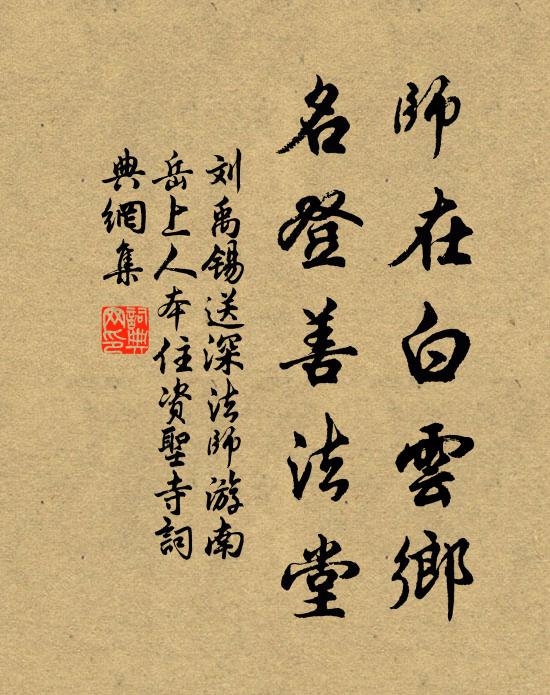 師在白雲鄉
名登善法堂
刘禹锡送深法師游南
岳上人本住资聖寺詞
典網集
詞典
网印